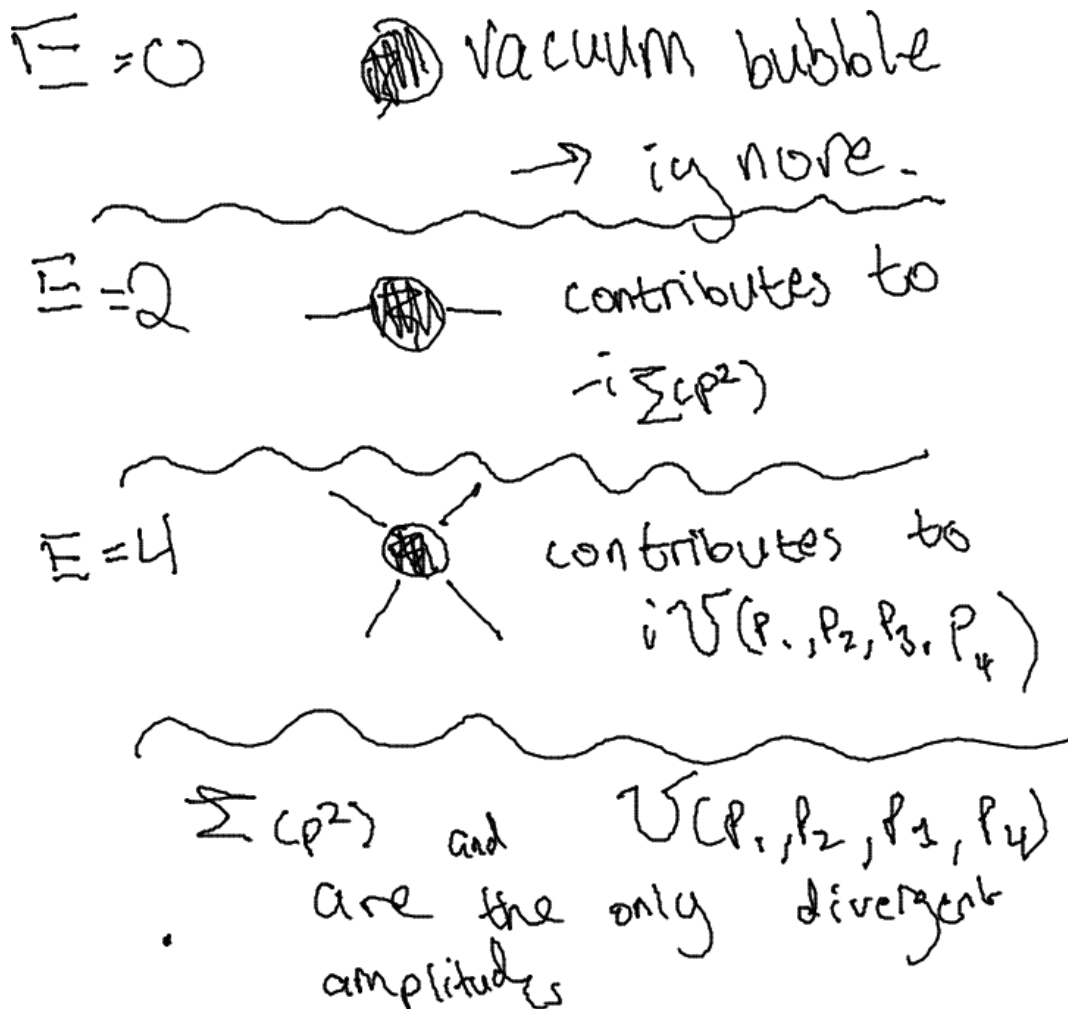 E=0 vacuum bubble
→ ignore.
E=2 contributes to
-iΣ(p²)
E=4 contributes to
iV(P1,P2,P3,P4)
Σ(p²) and V(P1,P2,P1,P4)
are the only divergent
amplitudes